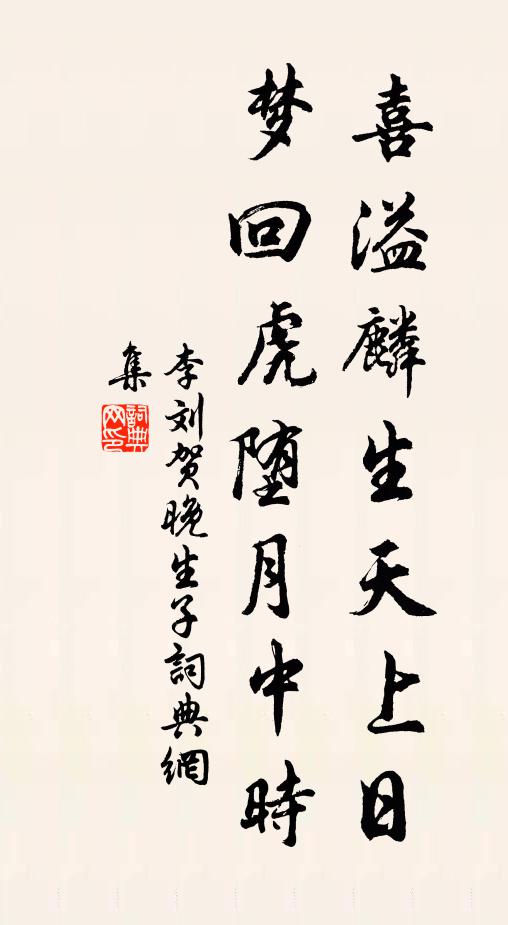 喜溢麟生天上日
梦回虎堕月中時
李刘贺晚生子詞典網
集
詞典网印